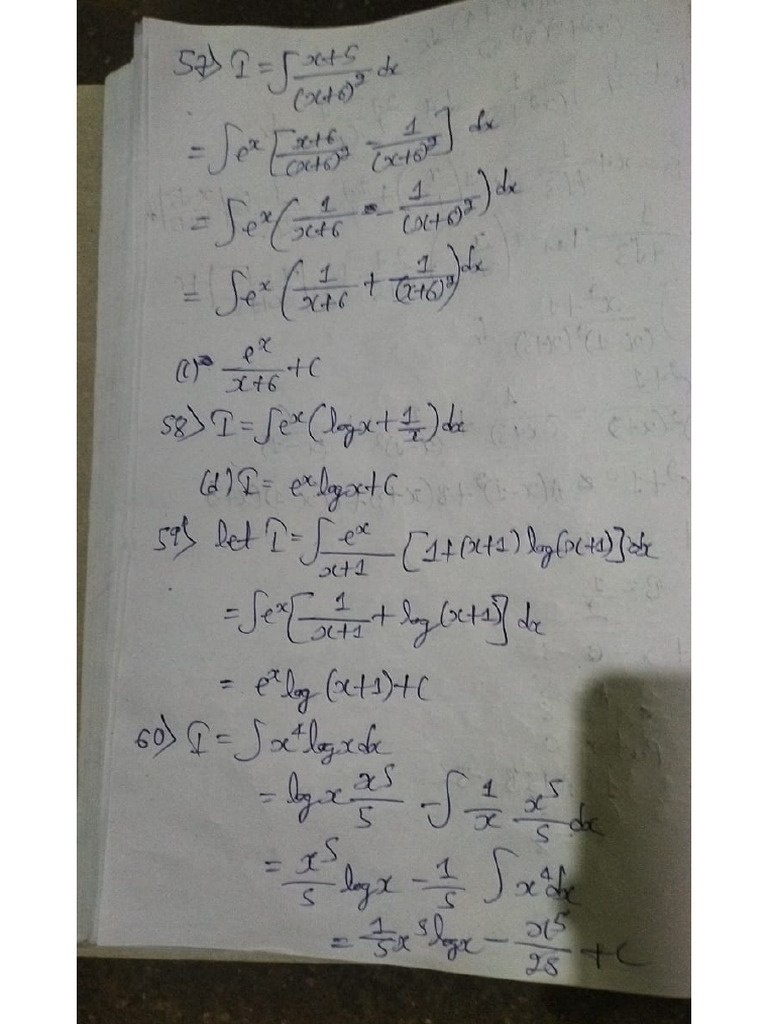 57) I = ∫ x+5/(x+6)² dx
= ∫eˣ [x+6/(x+6)² - 1/(x+6)²] dx
= ∫eˣ (1/x+6 - 1/(x+6)²) dx
= ∫eˣ (1/x+6 + 1/(x+6)²) dx
(c) eˣ/x+6 + C
58) I = ∫eˣ (log x + 1/x) dx
(d) I = eˣ log x + C
59) let I = ∫ eˣ/x+1 [1+(x+1) log(x+1)] dx
= ∫eˣ [1/x+1 + log(x+1)] dx
= eˣ log (x+1) + C
60) I = ∫ x⁴ log x dx
= log x x⁵/5 - ∫ 1/x x⁵/5 dx
= x⁵/5 log x - 1/5 ∫ x⁴ dx
= 1/5 x⁵ log x - x⁵/25 + C